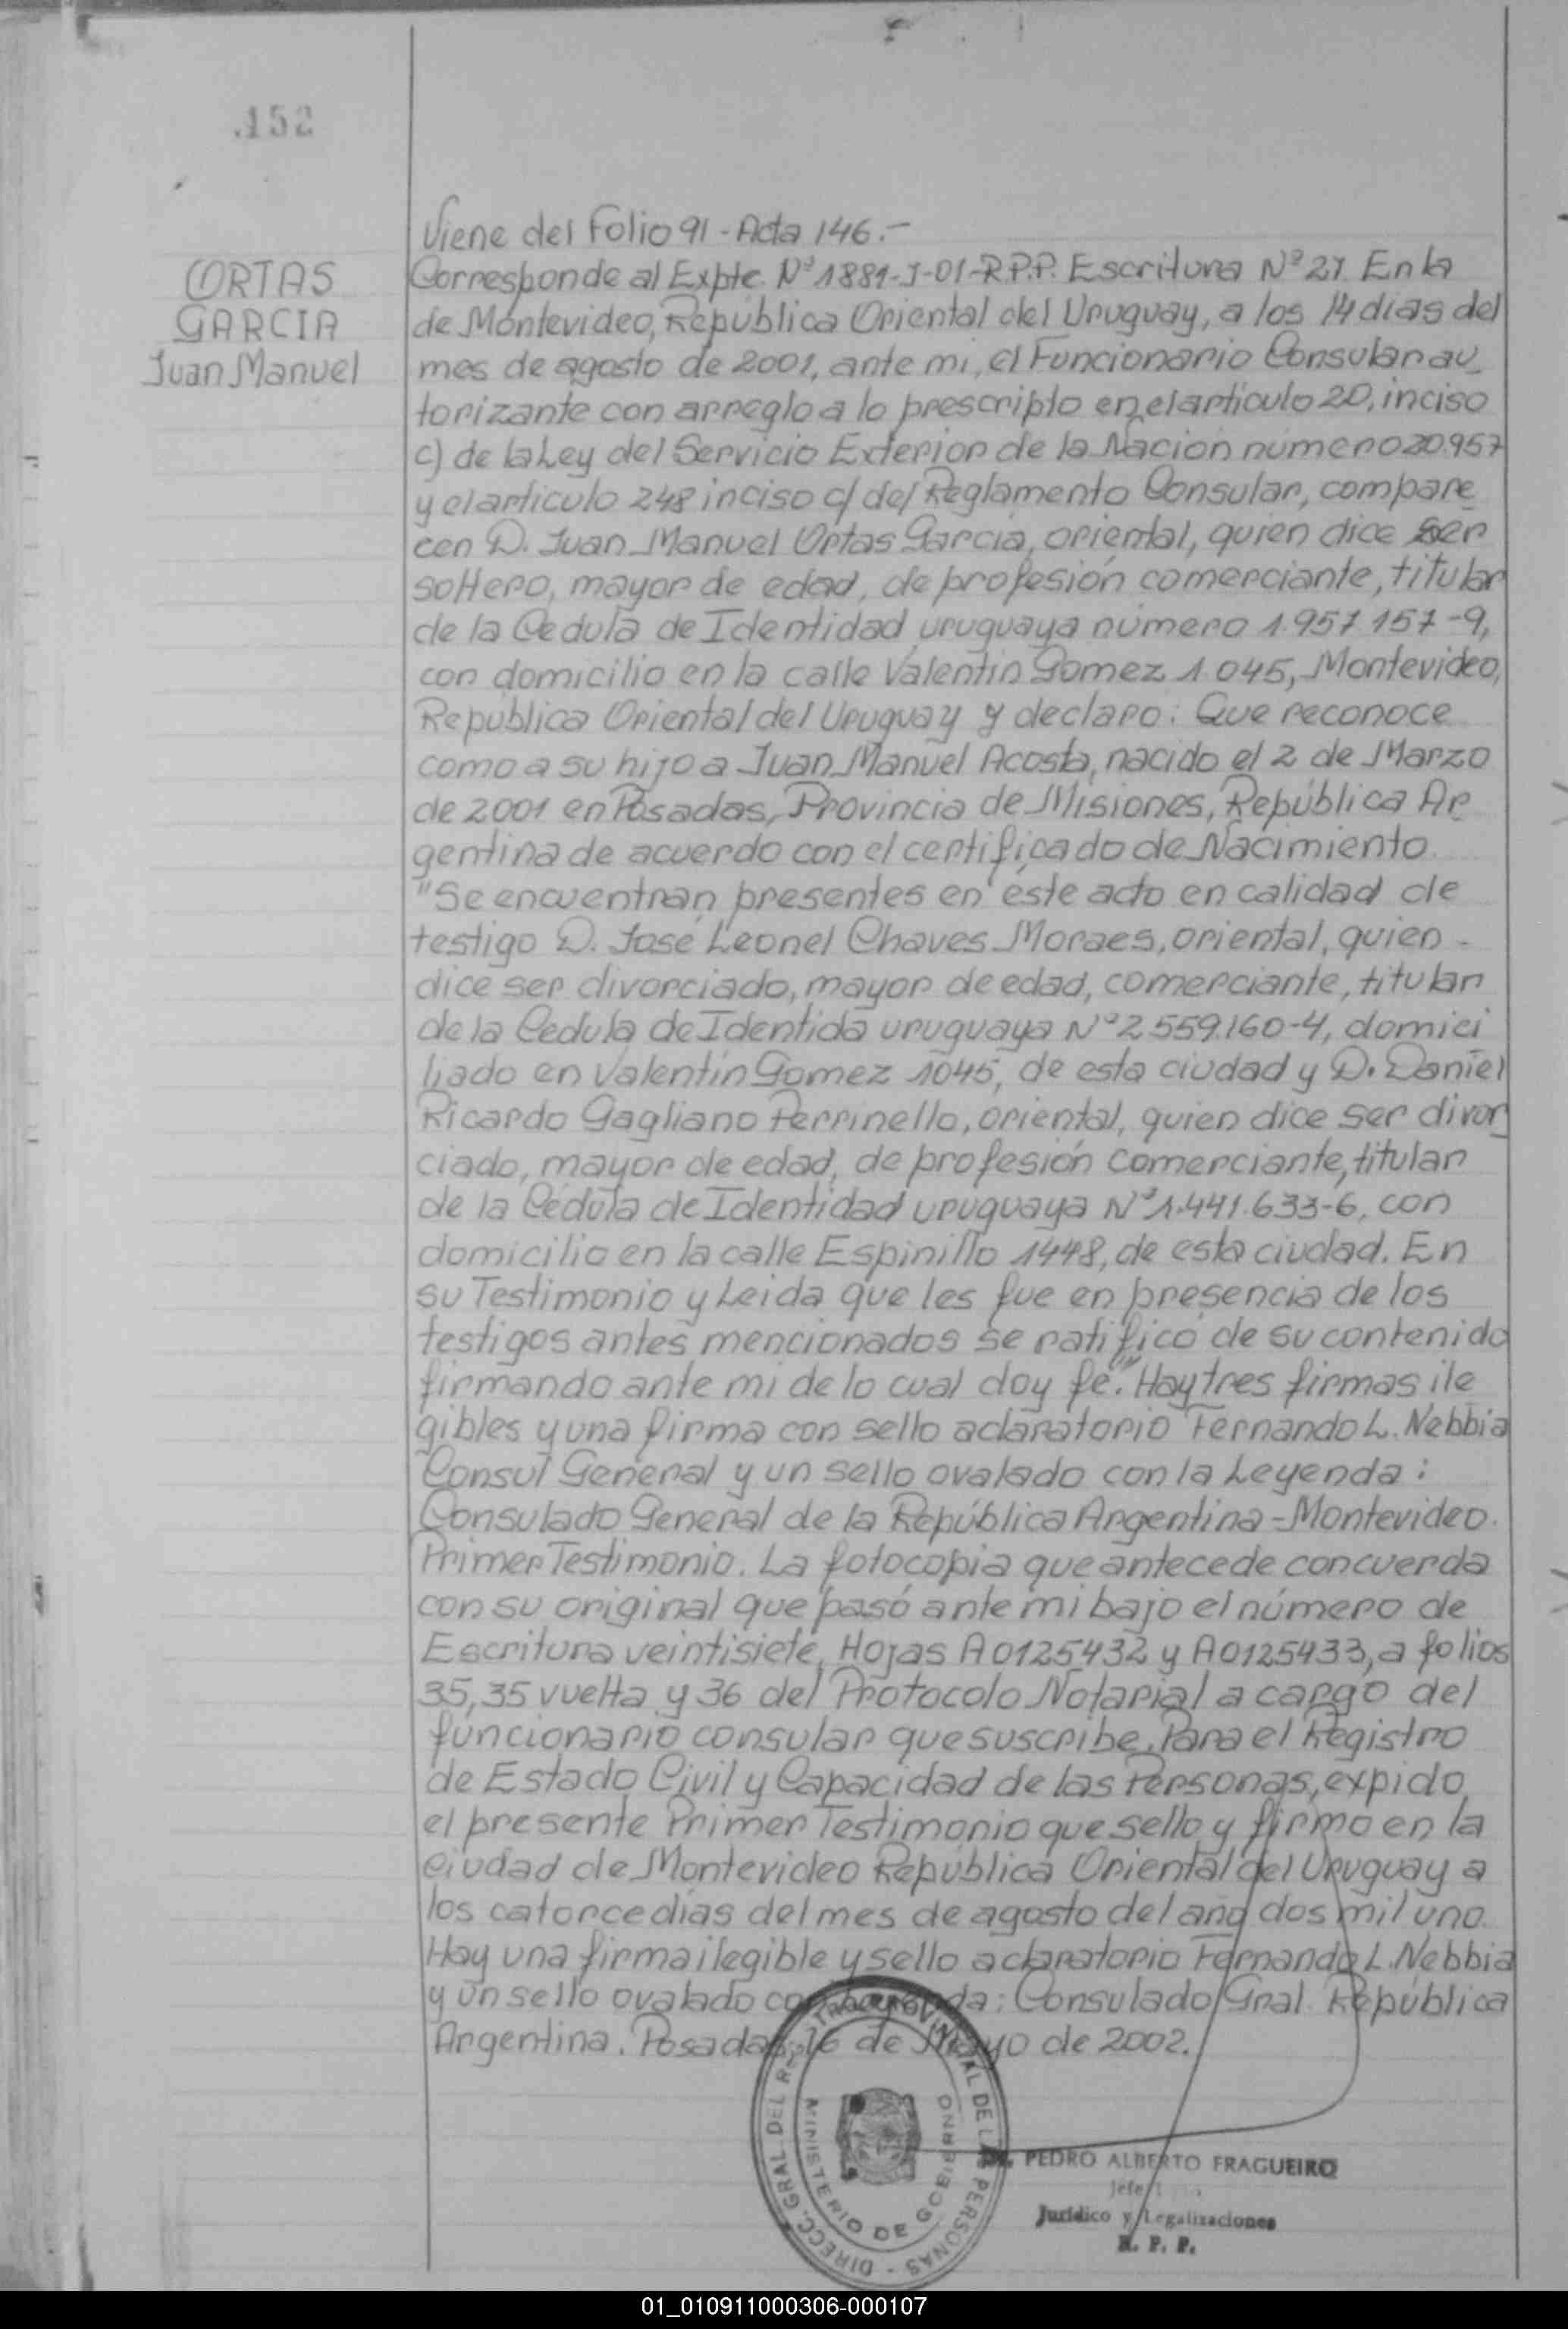 152
ORTAS
GARCIA
Juan Manuel
Viene del Folio 91 - Acta 146.-
Corresponde al Expte. Nº 1881-J-01-R.P.P. Escritura Nº 27. En la
de Montevideo, República Oriental del Uruguay, a los 14 dias del
mes de agosto de 2001, ante mi, el Funcionario Consular au_
torizante con arreglo a lo prescripto en el articulo 20, inciso
c) de la Ley del Servicio Exterior de la Nación número 20.957
y el articulo 248 inciso c/ del Reglamento Consular, compare_
cen D. Juan Manuel Ortas Garcia, oriental, quien dice ser
soltero, mayor de edad, de profesión comerciante, titular
de la Cedula de Identidad uruguaya número 1.957.157-9,
con domicilio en la calle Valentin Gomez 1.045, Montevideo,
Republica Oriental del Uruguay y declaro: Que reconoce
como a su hijo a Juan Manuel Acosta, nacido el 2 de Marzo
de 2001 en Posadas, Provincia de Misiones, República Ar_
gentina de acuerdo con el certificado de Nacimiento.
"Se encuentran presentes en éste acto en calidad de
testigo D. José Leonel Chaves Moraes, oriental, quien -
dice ser divorciado, mayor de edad, comerciante, titular
de la Cedula de Identida uruguaya Nº 2.559.160-4, domici
liado en Valentín Gomez 1045, de esta ciudad y D. Daniel
Ricardo Gagliano Perrinello, oriental, quien dice ser divor_
ciado, mayor de edad, de profesión comerciante, titular
de la Cédula de Identidad uruguaya Nº 1.441.633-6, con
domicilio en la calle Espinillo 1448, de esta ciudad. En
su Testimonio y Leida que les fue en presencia de los
testigos antes mencionados se ratificó de su contenido
firmando ante mi de lo cual doy fe." Hay tres firmas ile
gibles y una firma con sello aclaratorio Fernando L. Nebbia
Consul General y un sello ovalado con la Leyenda:
Consulado General de la República Argentina - Montevideo.
Primer Testimonio. La fotocopia que antecede concuerda
con su original que pasó ante mi bajo el número de
Escritura veintisiete, Hojas A0125432 y A0125433, a folios
35, 35 vuelta y 36 del Protocolo Notarial a cargo del
funcionario consular que suscribe. Para el Registro
de Estado Civil y Capacidad de las Personas, expido
el presente Primer Testimonio que sello y firmo en la
ciudad de Montevideo República Oriental del Uruguay a
los catorce dias del mes de agosto del año dos mil uno.
Hay una firma ilegible y sello aclaratorio Fernando L. Nebbia
y un sello ovalado con leyenda: Consulado Gral. República
Argentina. Posadas, 16 de Mayo de 2002.
DIRECC. GRAL DEL REGISTRO PROVINCIAL DE LAS PERSONAS -
MINISTERIO DE GOBIERNO
Dr. PEDRO ALBERTO FRAGUEIRO
Jefe
Jurídico y Legalizaciones
R. P. P.
01_010911000306-000107